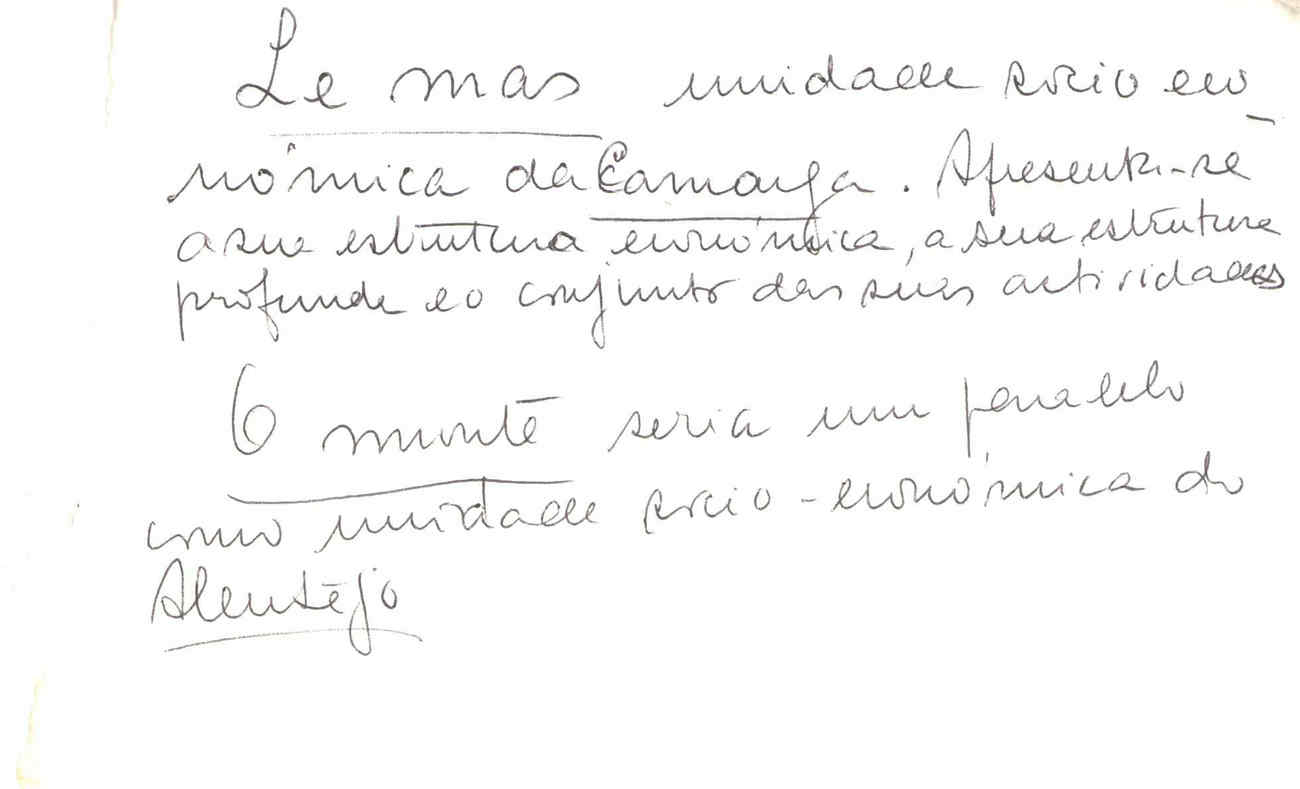 Le mas unidade socio eco-
nômica da Camarga. Apresenta-se
a sua estrutura económica, a sua estrutura
profunda e o conjunto das suas actividades
O monte seria um paralelo
como unidade socio-económica do
Alentejo